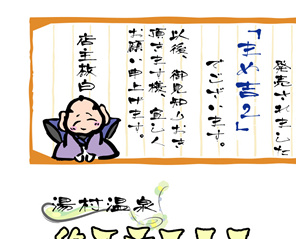 発売されました
「まめ吉2」
でございます。
以後、御見知りおき
頂きます様、宜しく
お願い申上げます。
店主敬白
湯村温泉